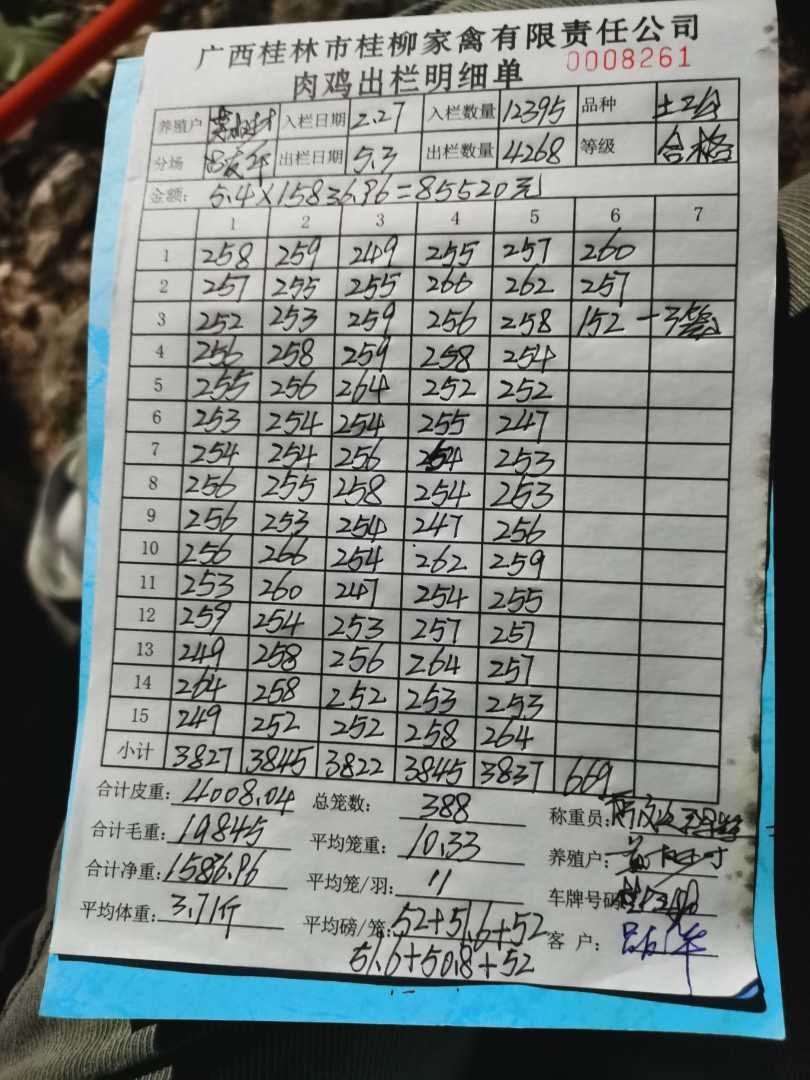 广西桂林市桂柳家禽有限责任公司
肉鸡出栏明细单 0008261
养殖户 入栏日期 2.27 入栏数量 12395 品种 土2
分场 出栏日期 5.3 出栏数量 4268 等级 合格
金额: 5.4×15836.96=85520元
1 2 3 4 5 6 7
1 258 259 249 255 257 260
2 257 255 255 266 262 257
3 252 253 259 256 258 152 一3笼
4 256 258 259 258 254
5 255 256 264 252 252
6 253 254 254 255 247
7 254 254 256 254 253
8 256 255 258 254 253
9 256 253 254 247 256
10 256 266 254 262 259
11 253 260 247 254 255
12 259 254 253 257 257
13 249 258 256 264 257
14 264 258 252 253 253
15 249 252 252 258 264
小计 3827 3845 3822 3845 3837 669
合计皮重: 4008.04 总笼数: 388 称重员:
合计毛重: 19845 平均笼重: 10.33 养殖户:
合计净重: 15836.96 平均笼/羽: 11 车牌号码
平均体重: 3.71斤 平均磅/笼: 52+51.6+52 客户:
51.6+50.8+52